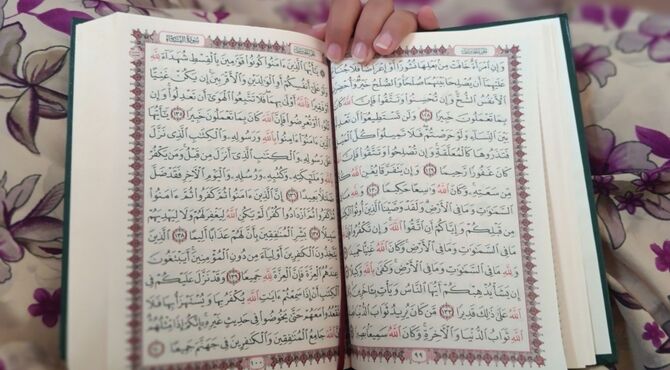 سُورَةُ النِّسَاءِ
وَإِنِ ٱمْرَأَةٌ خَافَتْ مِنۢ بَعْلِهَا نُشُوزًا أَوْ إِعْرَاضًا فَلَا جُنَاحَ
عَلَيْهِمَآ أَن يُصْلِحَا بَيْنَهُمَا صُلْحًا وَٱلصُّلْحُ خَيْرٌ
ٱلْأَنفُسُ ٱلشُّحَّ وَإِن تُحْسِنُوا۟ وَتَتَّقُوا۟ فَإِنَّ ٱللَّهَ
بِمَا تَعْمَلُونَ خَبِيرًا ١٢٨ وَلَن تَسْتَطِيعُوٓا۟ أَن
بَيْنَ ٱلنِّسَآءِ وَلَوْ حَرَصْتُمْ فَلَا تَمِيلُوا۟ كُلَّ
فَتَذَرُوهَا كَٱلْمُعَلَّقَةِ وَإِن تُصْلِحُوا۟ وَتَتَّقُوا۟ فَإِنَّ
كَانَ غَفُورًا رَّحِيمًا ١٢٩ وَإِن يَتَفَرَّقَا يُغْنِ ٱللَّهُ
مِّن سَعَتِهِۦ وَكَانَ ٱللَّهُ وَٰسِعًا حَكِيمًا ١٣٠
ٱلسَّمَٰوَٰتِ وَمَا فِى ٱلْأَرْضِ وَلَقَدْ وَصَّيْنَا ٱلَّذِينَ أُوتُوا۟
مِن قَبْلِكُمْ وَإِيَّاكُمْ أَنِ ٱتَّقُوا۟ ٱللَّهَ وَإِن تَكْفُرُوا۟
مَا فِى ٱلسَّمَٰوَٰتِ وَمَا فِى ٱلْأَرْضِ وَكَانَ ٱللَّهُ غَنِيًّا حَمِيدًا
وَلِلَّهِ مَا فِى ٱلسَّمَٰوَٰتِ وَمَا فِى ٱلْأَرْضِ وَكَفَىٰ بِٱللَّهِ وَكِيلًا
إِن يَشَأْ يُذْهِبْكُمْ أَيُّهَا ٱلنَّاسُ وَيَأْتِ بِـَٔاخَرِينَ
عَلَىٰ ذَٰلِكَ قَدِيرًا ١٣٣ مَّن كَانَ يُرِيدُ ثَوَابَ ٱلدُّنْيَا
ٱللَّهِ ثَوَابُ ٱلدُّنْيَا وَٱلْـَٔاخِرَةِ وَكَانَ ٱللَّهُ سَمِيعًۢا
٩٩
يَٰٓأَيُّهَا ٱلَّذِينَ ءَامَنُوا۟ كُونُوا۟ قَوَّٰمِينَ بِٱلْقِسْطِ شُهَدَآءَ لِلَّهِ
وَلَوْ عَلَىٰٓ أَنفُسِكُمْ أَوِ ٱلْوَٰلِدَيْنِ وَٱلْأَقْرَبِينَ إِن يَكُنْ غَنِيًّا
أَوْ فَقِيرًا فَٱللَّهُ أَوْلَىٰ بِهِمَا فَلَا تَتَّبِعُوا۟ ٱلْهَوَىٰٓ أَن تَعْدِلُوا۟ وَإِن
تَلْوُۥٓا۟ أَوْ تُعْرِضُوا۟ فَإِنَّ ٱللَّهَ كَانَ بِمَا تَعْمَلُونَ خَبِيرًا ١٣٥ يَٰٓأَيُّهَا
ٱلَّذِينَ ءَامَنُوٓا۟ ءَامِنُوا۟ بِٱللَّهِ وَرَسُولِهِۦ وَٱلْكِتَٰبِ ٱلَّذِى نَزَّلَ
عَلَىٰ رَسُولِهِۦ وَٱلْكِتَٰبِ ٱلَّذِىٓ أَنزَلَ مِن قَبْلُ وَمَن يَكْفُرْ
بِٱللَّهِ وَمَلَٰٓئِكَتِهِۦ وَكُتُبِهِۦ وَرُسُلِهِۦ وَٱلْيَوْمِ ٱلْـَٔاخِرِ فَقَدْ ضَلَّ
ضَلَٰلًۢا بَعِيدًا ١٣٦ إِنَّ ٱلَّذِينَ ءَامَنُوا۟ ثُمَّ كَفَرُوا۟ ثُمَّ ءَامَنُوا۟
ثُمَّ كَفَرُوا۟ ثُمَّ ٱزْدَادُوا۟ كُفْرًا لَّمْ يَكُنِ ٱللَّهُ لِيَغْفِرَ لَهُمْ وَلَا لِيَهْدِيَهُمْ
سَبِيلًۢا ١٣٧ بَشِّرِ ٱلْمُنَٰفِقِينَ بِأَنَّ لَهُمْ عَذَابًا أَلِيمًا ١٣٨ ٱلَّذِينَ
يَتَّخِذُونَ ٱلْكَٰفِرِينَ أَوْلِيَآءَ مِن دُونِ ٱلْمُؤْمِنِينَ أَيَبْتَغُونَ
عِندَهُمُ ٱلْعِزَّةَ فَإِنَّ ٱلْعِزَّةَ لِلَّهِ جَمِيعًا ١٣٩ وَقَدْ نَزَّلَ عَلَيْكُمْ فِى
ٱلْكِتَٰبِ أَنْ إِذَا سَمِعْتُمْ ءَايَٰتِ ٱللَّهِ يُكْفَرُ بِهَا وَيُسْتَهْزَأُ بِهَا فَلَا
تَقْعُدُوا۟ مَعَهُمْ حَتَّىٰ يَخُوضُوا۟ فِى حَدِيثٍ غَيْرِهِۦٓ إِنَّكُمْ إِذًا مِّثْلُهُمْ
إِنَّ ٱللَّهَ جَامِعُ ٱلْمُنَٰفِقِينَ وَٱلْكَٰفِرِينَ فِى جَهَنَّمَ جَمِيعًا ١٤٠
١٠٠